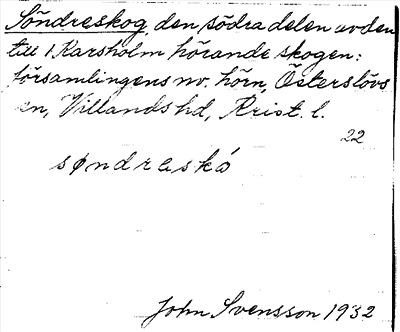 Söndreskog, den södra delen av den
till 1 Karsholm hörande skogen:
församlingens nv. hörn, Österslövs
sn, Villands hd, Krist. l.
22
søndraskó
John Svensson 1932